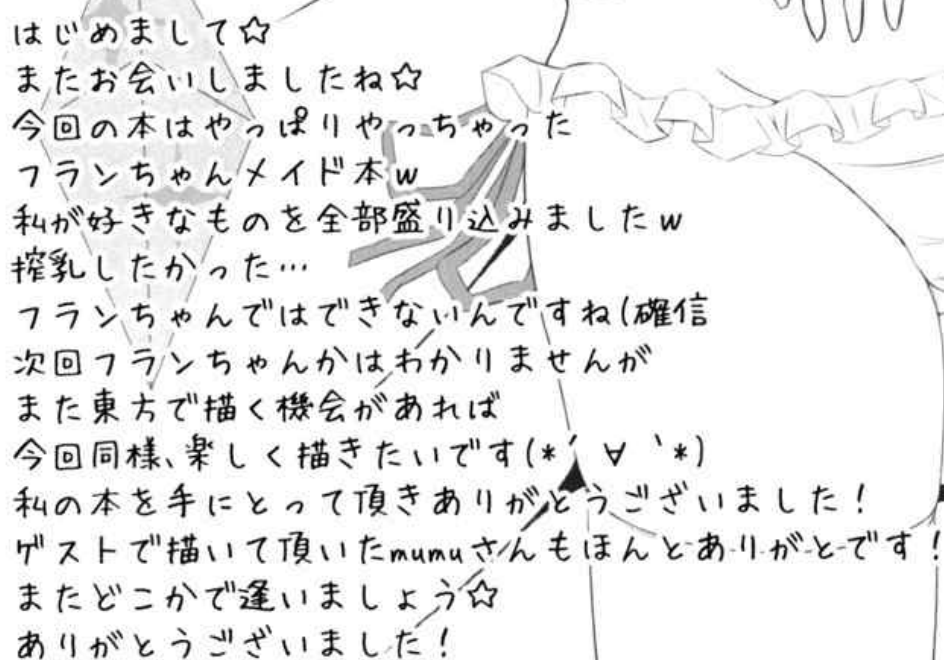 はじめまして☆
またお会いしましたね☆
今回の本はやっぱりやっちゃった
フランちゃんメイド本w
私が好きなものを全部盛り込みましたw
搾乳したかった…
フランちゃんではできないんですね(確信
次回フランちゃんかはわかりませんが
また東方で描く機会があれば
今回同様、楽しく描きたいです(*´∀｀*)
私の本を手にとって頂きありがとうございました!
ゲストで描いて頂いたmumuさんもほんとありがとです!
またどこかで逢いましょう☆
ありがとうございました!